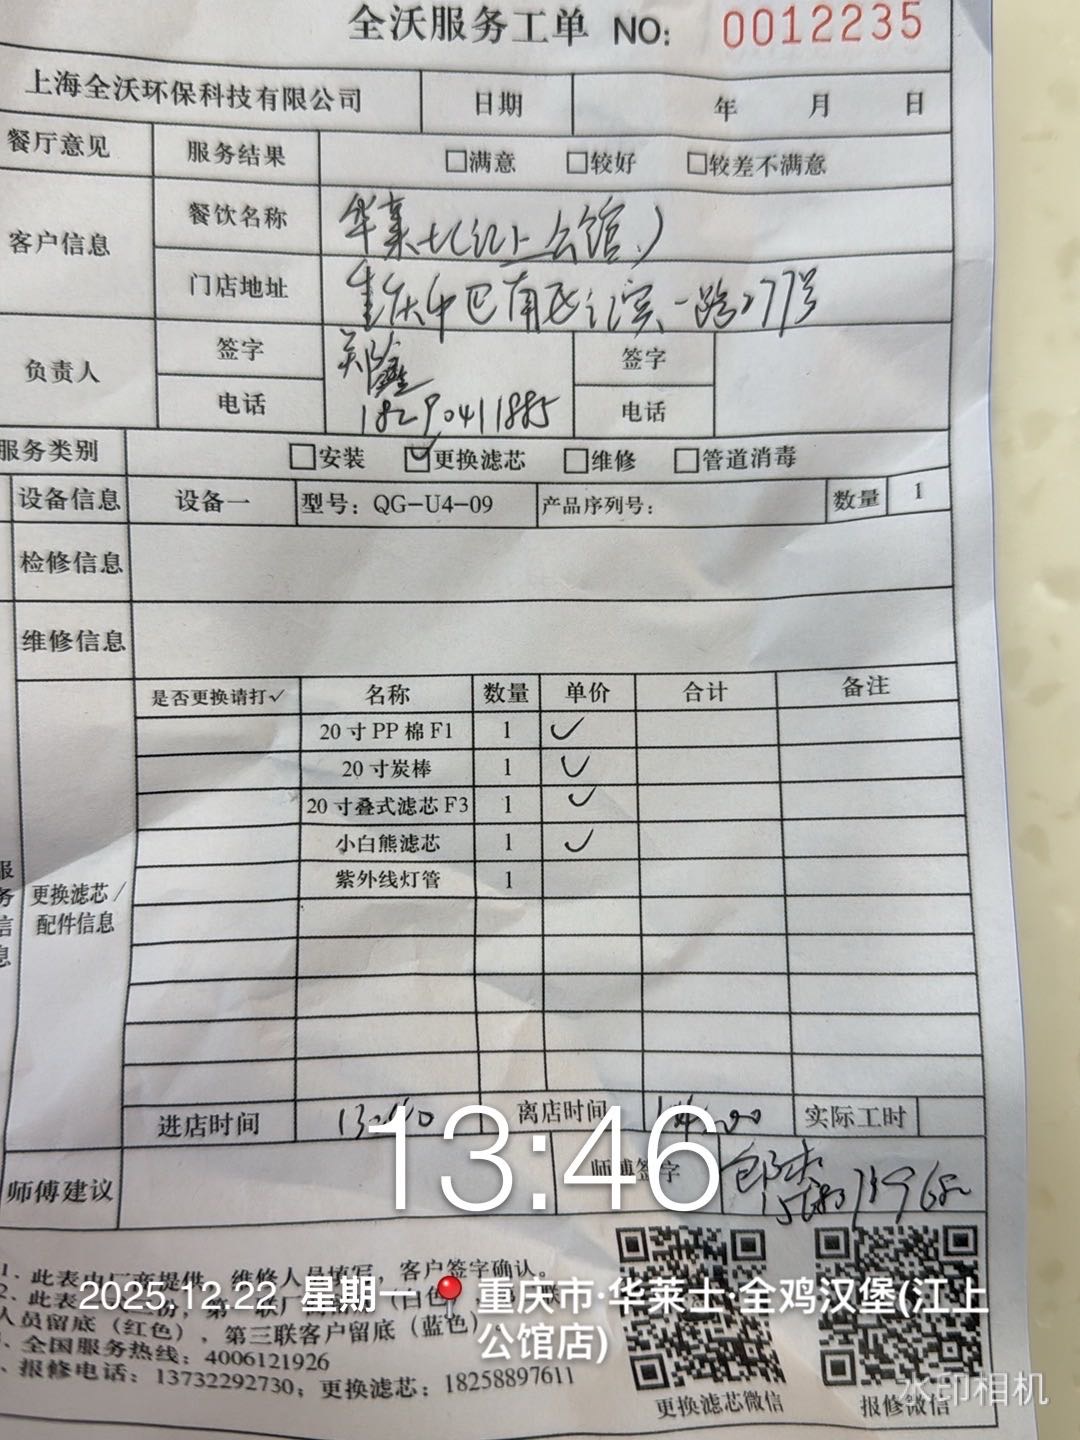 全沃服务工单 NO: 0012235
上海全沃环保科技有限公司 日期 年 月 日
餐厅意见 服务结果 □满意 □较好 □较差不满意
客户信息 餐饮名称 华莱士(江上公馆)
门店地址 重庆市巴南区江滨一路277号
负责人 签字 郑鑫 签字
电话 18290411885 电话
服务类别 □安装 ☑更换滤芯 □维修 □管道消毒
设备信息 设备一 型号: QG-U4-09 产品序列号: 数量 1
检修信息
维修信息
是否更换请打✓ 名称 数量 单价 合计 备注
20寸PP棉F1 1 ✓
20寸炭棒 1 ✓
20寸叠式滤芯F3 1 ✓
小白熊滤芯 1 ✓
紫外线灯管 1
服务信息 更换滤芯/
配件信息
进店时间 13:40 离店时间 14:00 实际工时
13:46
师傅建议 师傅签字
1. 此表由厂商提供,维修人员填写,客户签字确认。
2. 此表
人员留底(红色),第三联客户留底(蓝色)。
全国服务热线: 4006121926
报修电话: 13732292730; 更换滤芯: 18258897611
更换滤芯微信 报修微信
2025.12.22 星期一 重庆市·华莱士·全鸡汉堡(江上
公馆店)
水印相机